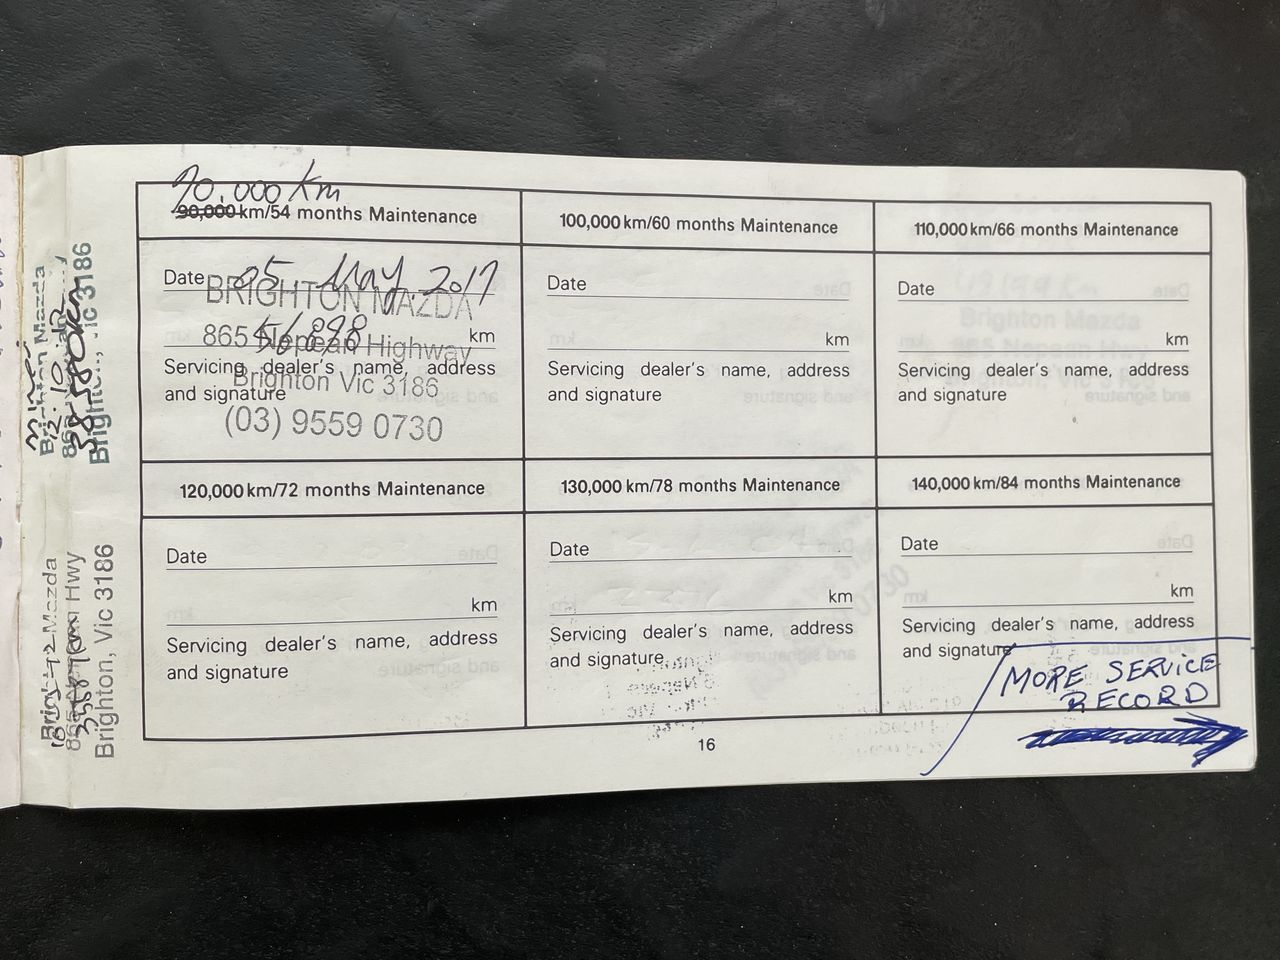 70,000 km
90,000 km/54 months Maintenance
Date 05 May 2017
BRIGHTON MAZDA
56,898 km
865 Nepean Highway
Servicing dealer's name, address
and signature
Brighton Vic 3186
(03) 9559 0730
100,000 km/60 months Maintenance
Date
km
Servicing dealer's name, address
and signature
110,000 km/66 months Maintenance
Date
km
Servicing dealer's name, address
and signature
120,000 km/72 months Maintenance
Date
km
Servicing dealer's name, address
and signature
130,000 km/78 months Maintenance
Date
km
Servicing dealer's name, address
and signature
140,000 km/84 months Maintenance
Date
km
Servicing dealer's name, address
and signature
MORE SERVICE
RECORD
16
Brighton Mazda
Vic 3186
Mazda
Hwy
Brighton, Vic 3186